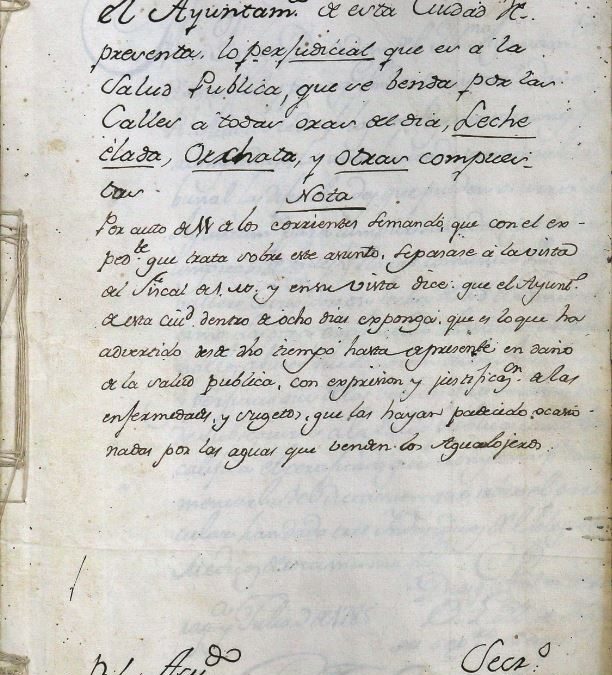 el Ayuntam.to de esta Ciudad Re-
presenta, lo perjudicial que es à la
Salud Publica, que se benda por las
Calles à todas oras del dia, Leche
elada, Orchata, y otras compues-
tas Nota
Por auto de 11 de los corrientes se mando, que con el ex-
ped.te que trata sobre este asunto, se pasase à la vista
del Fiscal de S. M. y en su vista dice: que el Ayunt.o
de esta Ciu.d dentro de ocho dias exponga, que es lo que ha
advertido desde dho tiempo hasta el presente en daño
de la salud publica, con expresion y justificac.on de las
enfermedades, y sugetos, que las hayan padecido, ocacio-
nadas por las aguas que venden los Agualojeros.
Secr.o